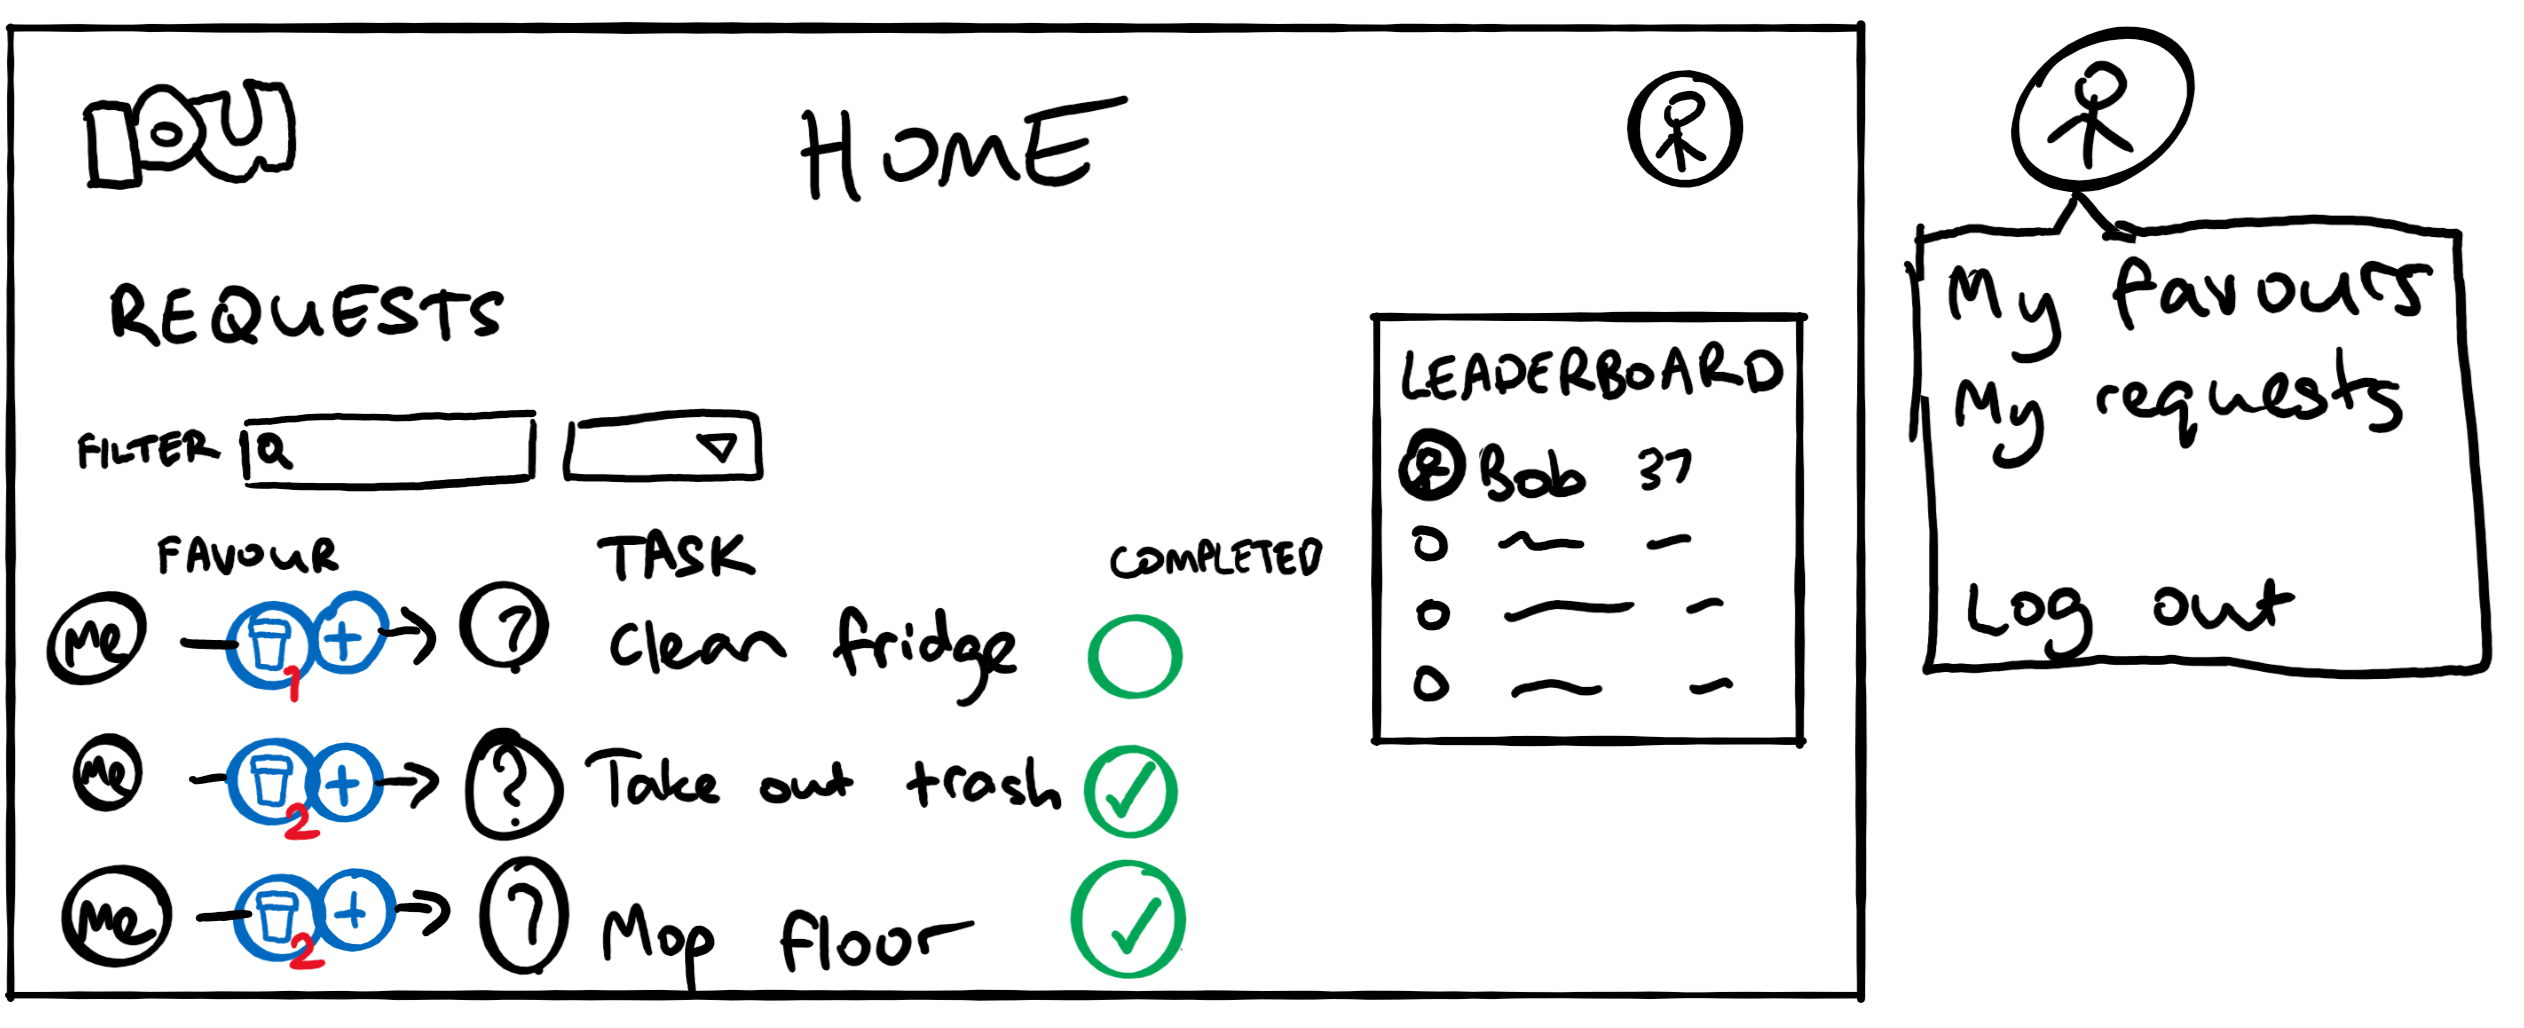 IOU
HOME
REQUESTS
FILTER
FAVOUR TASK COMPLETED
Me 1 + ? Clean fridge
Me 2 + ? Take out trash
Me 2 + ? Mop floor
LEADERBOARD
Bob 37
My favours
My requests
Log out